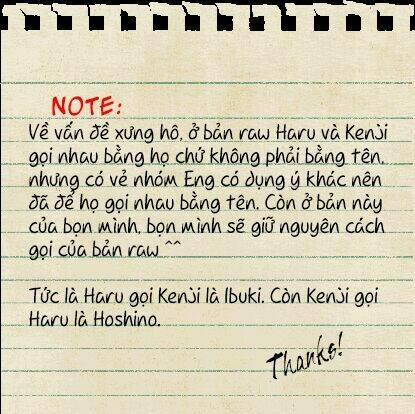 NOTE:
Về vấn đề xưng hô, ở bản raw Haru và Kenji
gọi nhau bằng họ chứ không phải bằng tên,
nhưng có vẻ nhóm Eng có dụng ý khác nên
đã để họ gọi nhau bằng tên. Còn ở bản này
của bọn mình, bọn mình sẽ giữ nguyên cách
gọi của bản raw ^^
Tức là Haru gọi Kenji là Ibuki. Còn Kenji gọi
Haru là Hoshino.
Thanks!